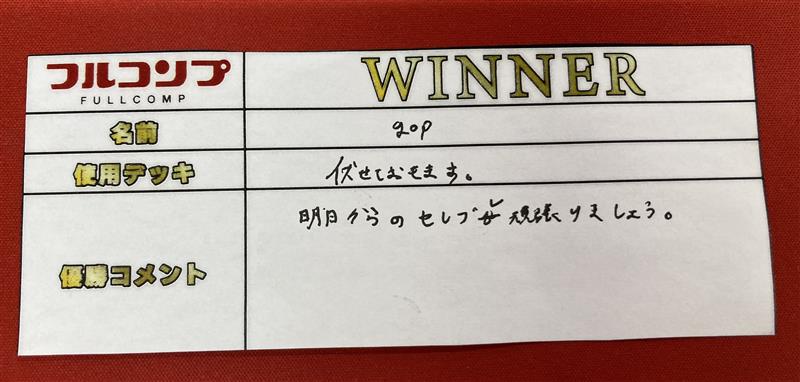 フルコンプ
FULLCOMP
WINNER
名前
gop
使用デッキ
伏せておきます。
優勝コメント
明日からのセレブレ頑張りましょう。